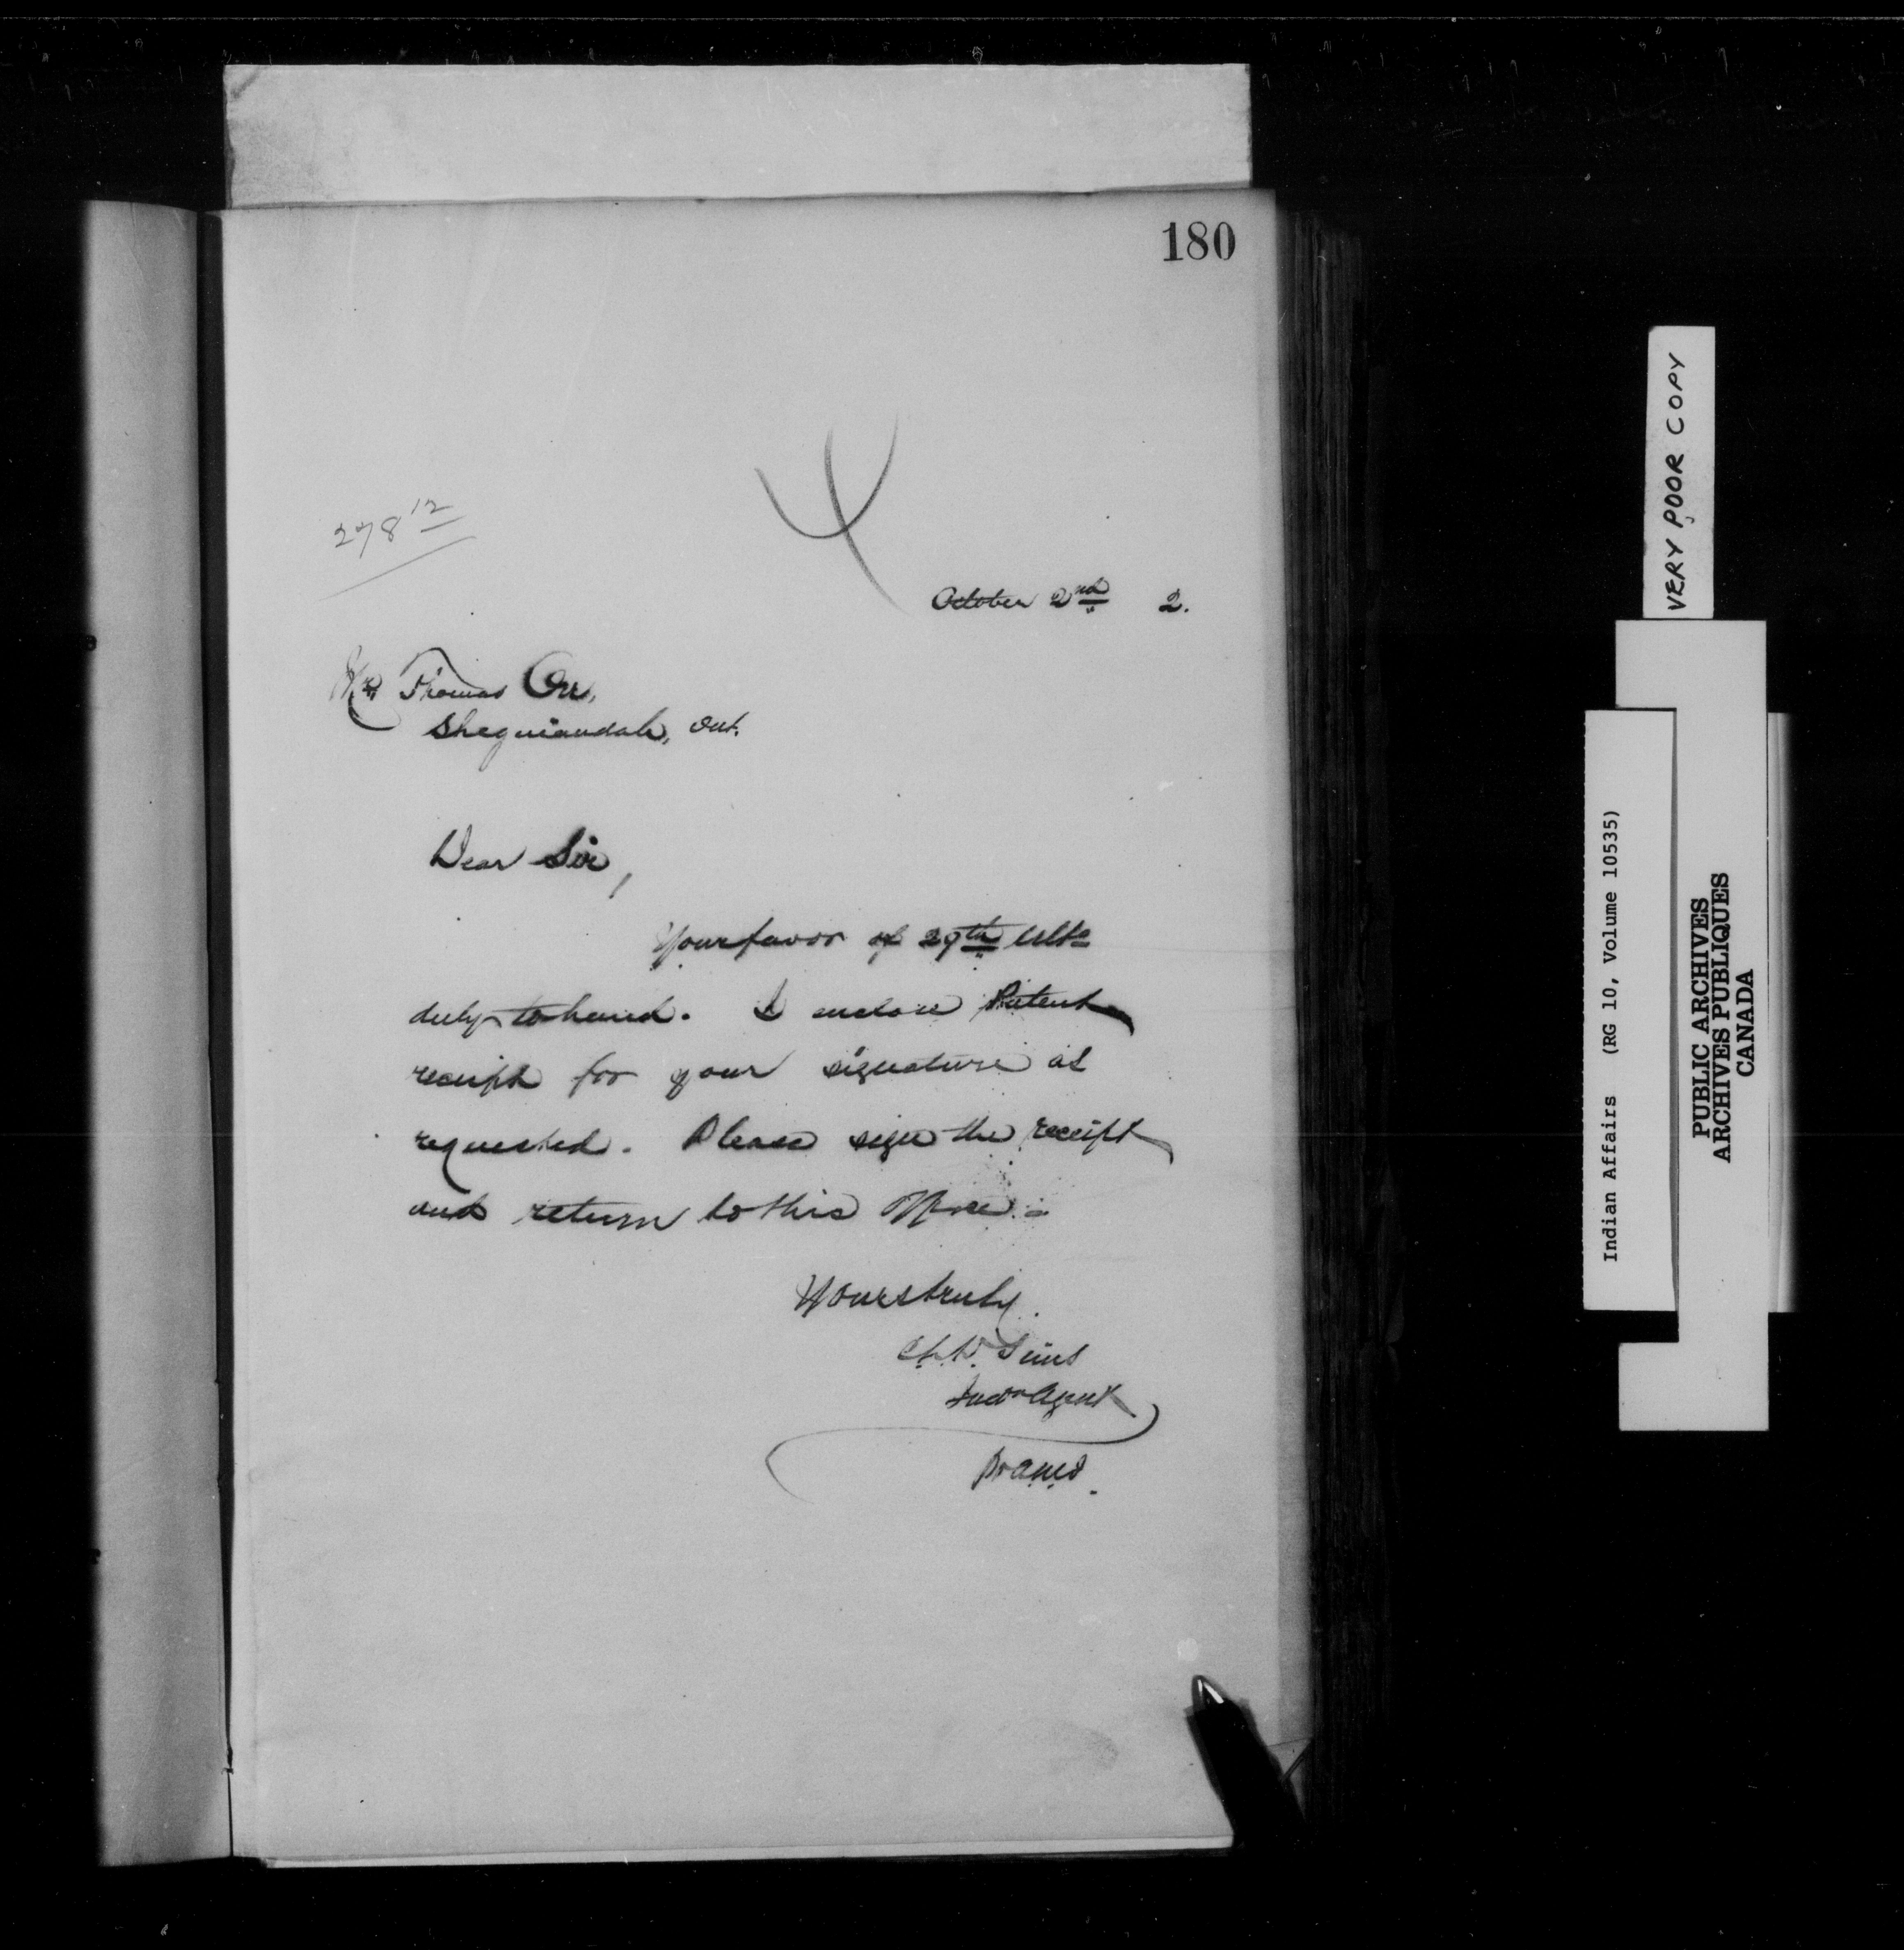 180
278 12
October 2nd 2.
Mr Thomas Orr,
Sheguiandah, Ont.
Dear Sir,
Your favor of 29th Ulto
duly to hand. I enclose Patent
receipt for your signature as
requested. Please sign the receipt
and return to this Office.
Yours truly.
Sims
Indn Agent
VERY POOR COPY
Indian Affairs (RG 10, Volume 10535)
PUBLIC ARCHIVES
ARCHIVES PUBLIQUES
CANADA